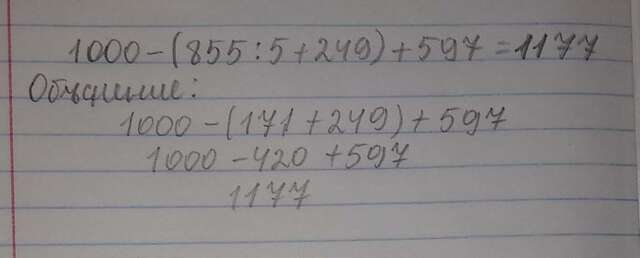 1000-(855:5+249)+597=1177
Объяснение:
1000-(171+249)+597
1000-420+597
1177